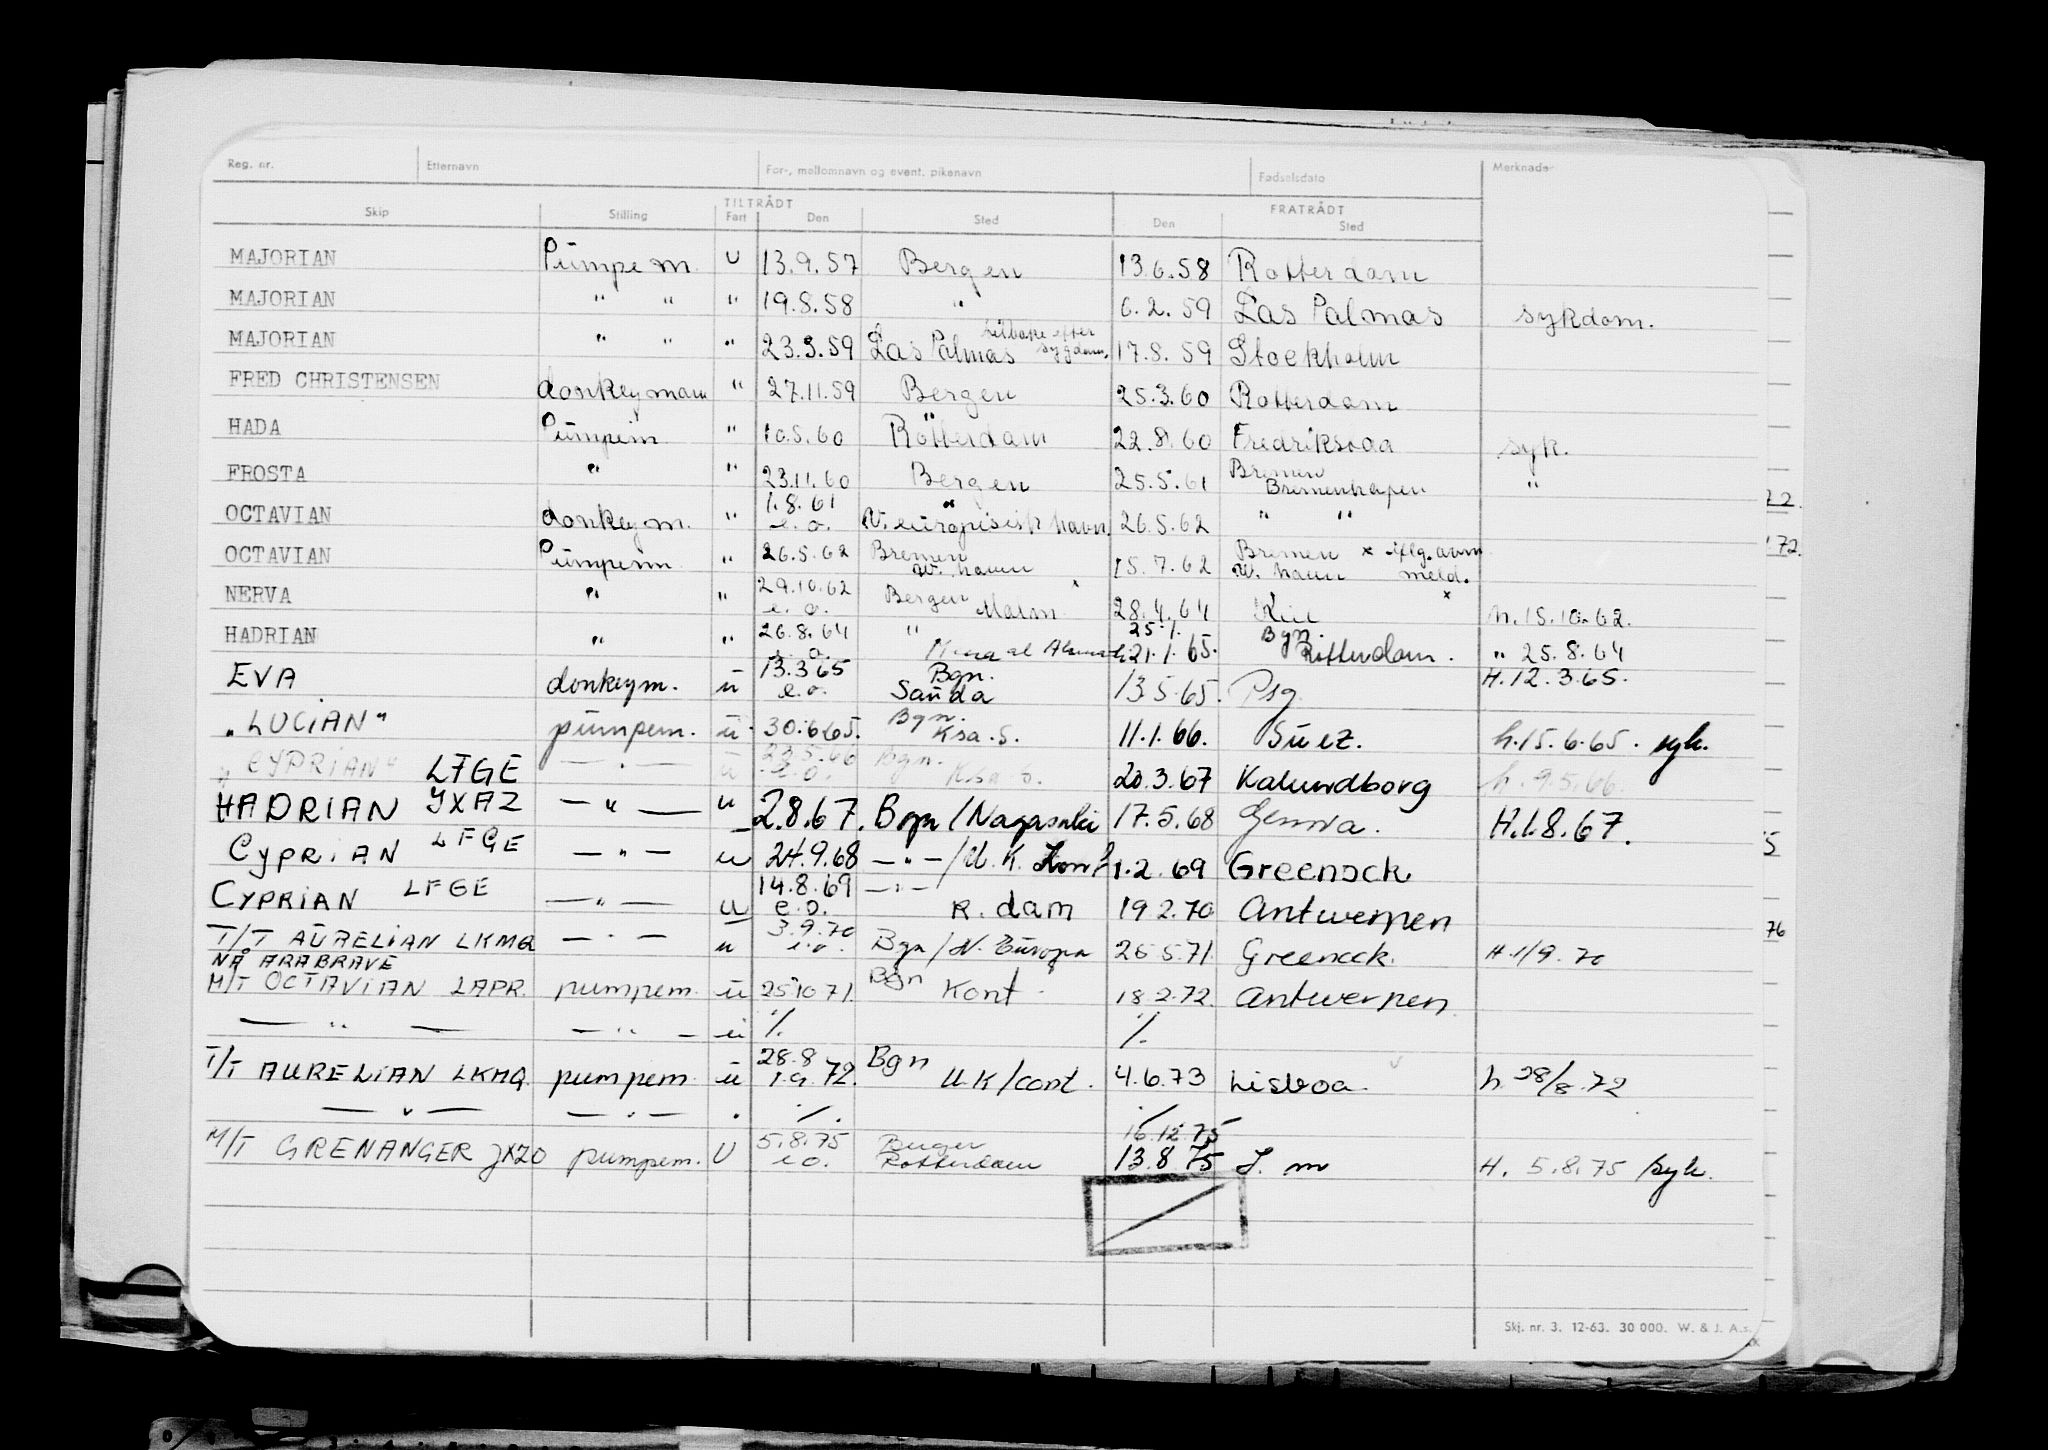 Reg. nr. Etternavn For-, mellomnavn og event. pikenavn Fødselsdato Merknader
TILTRÅDT FRATRÅDT
Skip Stilling Fart Den Sted Den Sted
MAJORIAN Pumpem. U 13.9.57 Bergen 13.6.58 Rotterdam
MAJORIAN " " " 19.8.58 " 6.2.59 Las Palmas sykdom.
MAJORIAN " " " 23.3.59 Las Palmas tilbake efter sygdom. 17.8.59 Stockholm
FRED CHRISTENSEN donkeyman " 27.11.59 Bergen 25.3.60 Rotterdam
HADA Pumpem " 10.5.60 Rotterdam 22.8.60 Fredriksvaa syk.
FROSTA " " 23.11.60 Bergen 25.5.61 Bremen Bremenhafen "
OCTAVIAN donkeym. " 1.8.61 e.o. " V. europisisk havn 26.5.62 " "
OCTAVIAN Pumpem " 26.5.62 Bremen W. haven 15.7.62 Bremen W. haven x iflg. avm meld.
NERVA " " 29.10.62 e.o. Bergen Malm x 28.4.64 Kiel x h. 15.10.62.
HADRIAN " " 26.8.64 e.o. " al 25.1. 21.1.65. Bgn. Rotterdam. " 25.8.64
EVA donkeym. u 13.3.65 e.o. Bgn. Sauda 13.5.65. Psg. H. 12.3.65.
"LUCIAN" pumpem. u 30.6.65. Bgn. Ksa.S. 11.1.66. Suez. h. 15.6.65. syk.
"CYPRIAN" LFGE — " — u 23.5.66 e.o. Bgn. Ksa.S. 20.3.67 Kalundborg h. 9.5.66.
HADRIAN JXAZ — " — u 2.8.67. Bgn/Nagasaki 17.5.68 Genova. H. 1.8.67.
CYPRIAN LFGE — " — u 24.9.68 — " — /U.K. Kont 1.2.69 Greenock
CYPRIAN LFGE — " — u 14.8.69 e.o. — " — R.dam 19.2.70 Antwerpen
T/T AURELIAN LKMQ — " — u 3.9.70 e.o. Bgn/N. Europa 26.5.71. Greenock. H. 1/9.70
NÅ ARABRAVE
M/T OCTAVIAN LAPR. pumpem. u 25.10.71. Bgn Kont. 18.2.72. Antwerpen
— " — — " — u ./. ./.
T/T AURELIAN LKMQ. pumpem. u 28.8 1.9.72. Bgn U.K/cont. 4.6.73 Lisboa. h. 28/8.72
— " — — " — " ./. ./.
M/T GRENANGER JXZO pumpem. U 5.8.75 e.o. Rotterdam 16.12.75 13.8.75 J. m H. 5.8.75 /syk.
Skj. nr. 3. 12-63. 30 000. W. & J. A.s.